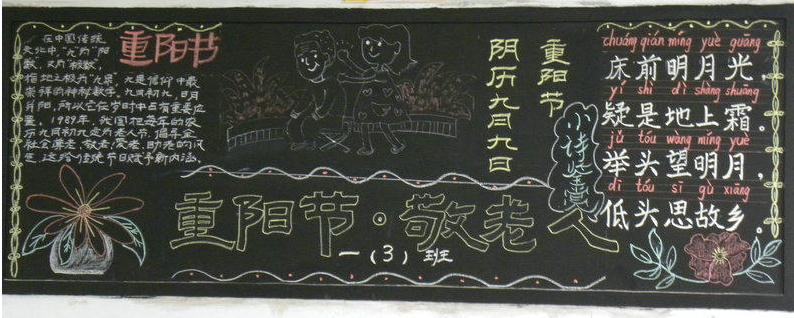 重阳节
在中国传统
文化中,"九"为"阳
数",又为"极数",
指地之极为"九泉"。九是信仰中最
崇拜的神秘数字。九月初九,日月
并阳,所以它在岁时中占有重要位
置。1989年,我国把每年的农
历九月初九定为老人节,倡导全
社会尊老、敬老、爱老、助老的风
气,这给传统节日赋予新内涵。
重阳节
阴历九月九日
重阳节·敬老人
一(3)班
小诗鉴赏
chuáng qián míng yuè guāng
床前明月光,
yí shì dì shàng shuāng
疑是地上霜。
jǔ tóu wàng míng yuè
举头望明月,
dī tóu sī gù xiāng
低头思故乡。